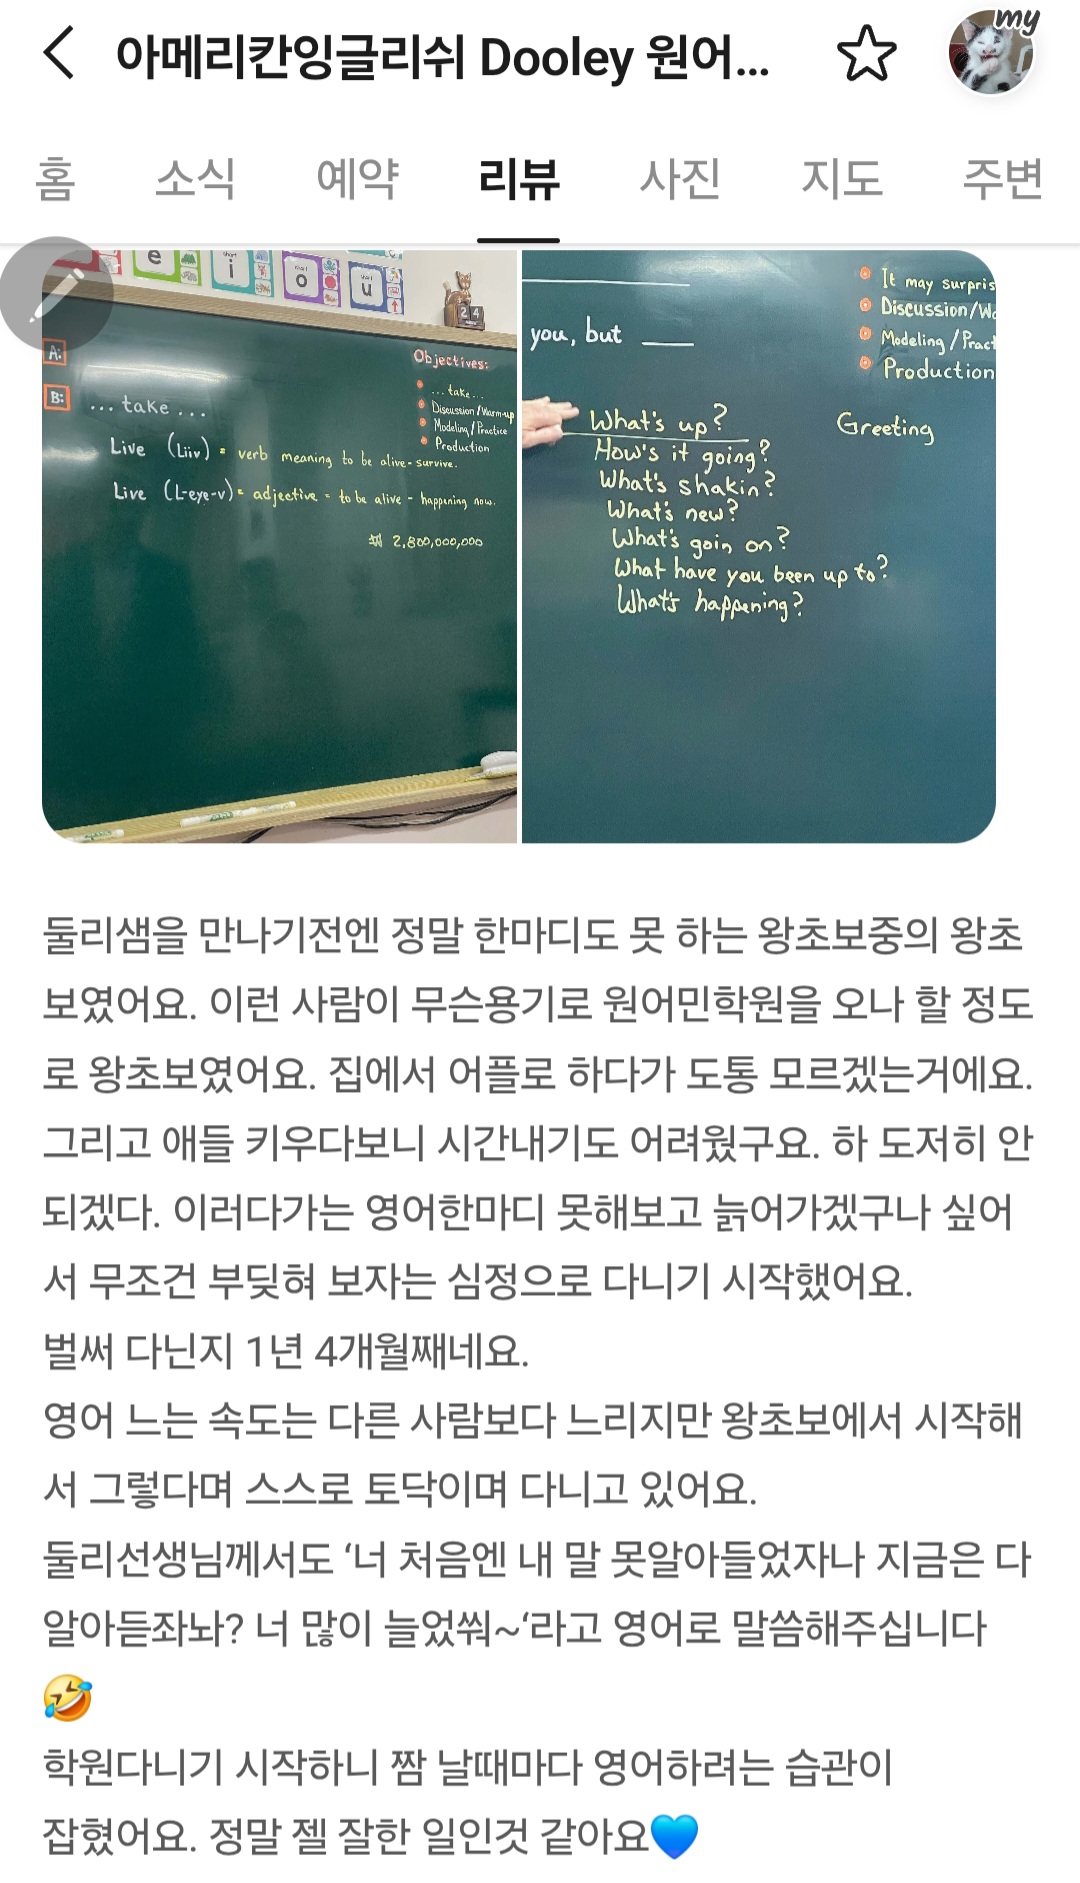 아메리칸잉글리쉬 Dooley 원어...
my
홈 소식 예약 리뷰 사진 지도 주변
e
short
i
short
o
short
u
24
A:
B:
... take ...
Live (Liiv) = verb meaning to be alive - survive.
Live (L-eye-v) = adjective = to be alive - happening now.
₩ 2,800,000,000
Objectives:
... take ...
Discussion / Warm-up
Modeling / Practice
Production
you, but ____
It may surpris
Discussion/Wa
Modeling / Pract
Production
What's up?
How's it going?
What's shakin?
What's new?
What's goin on?
What have you been up to?
What's happening?
Greeting
둘리샘을 만나기전엔 정말 한마디도 못 하는 왕초보중의 왕초
보였어요. 이런 사람이 무슨용기로 원어민학원을 오나 할 정도
로 왕초보였어요. 집에서 어플로 하다가 도통 모르겠는거에요.
그리고 애들 키우다보니 시간내기도 어려웠구요. 하 도저히 안
되겠다. 이러다가는 영어한마디 못해보고 늙어가겠구나 싶어
서 무조건 부딪혀 보자는 심정으로 다니기 시작했어요.
벌써 다닌지 1년 4개월째네요.
영어 느는 속도는 다른 사람보다 느리지만 왕초보에서 시작해
서 그렇다며 스스로 토닥이며 다니고 있어요.
둘리선생님께서도 ‘너 처음엔 내 말 못알아들었자나 지금은 다
알아듣좌놔? 너 많이 늘었쒀~‘라고 영어로 말씀해주십니다
🤣
학원다니기 시작하니 짬 날때마다 영어하려는 습관이
잡혔어요. 정말 젤 잘한 일인것 같아요💙